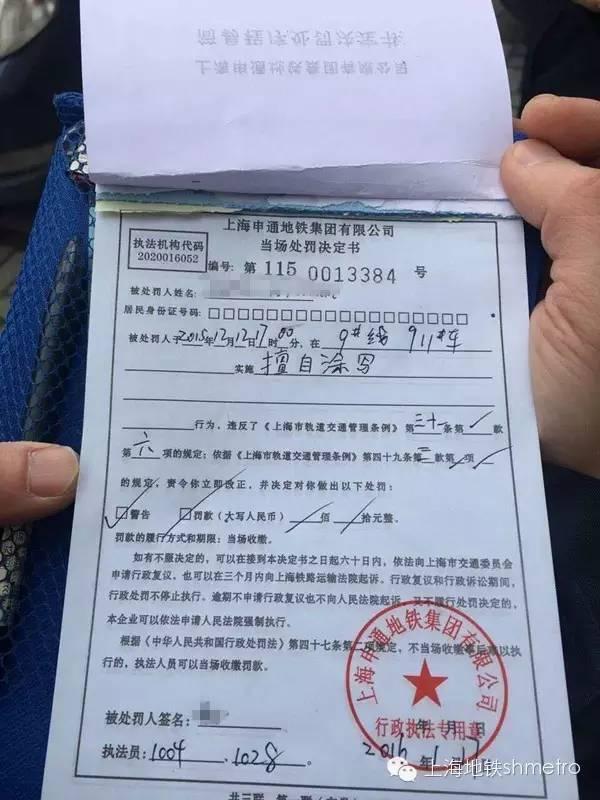 简易程序处罚决定书
上海申通地铁集团有限公司
上海申通地铁集团有限公司
当场处罚决定书
执法机构代码
2020016052
编号: 第 115 0013384 号
被处罚人姓名:
居民身份证号码: □□□□□□□□□□□□□□□□□□
被处罚人于2015年12月12日17时00分, 在 9#线 911#车
实施 擅自涂写
行为, 违反了《上海市轨道交通管理条例》第三十一条第/款
第六项的规定; 依据《上海市轨道交通管理条例》第四十九条第三款第/项
的规定, 责令你立即改正, 并决定对你做出以下处罚:
☑警告 □罚款(大写人民币) / 佰 / 拾元整。
罚款的履行方式和期限: 当场收缴。
如有不服决定的, 可以在接到本决定书之日起六十日内, 依法向上海市交通委员会
申请行政复议, 也可以在三个月内向上海铁路运输法院起诉。行政复议和行政诉讼期间,
行政处罚不停止执行。逾期不申请行政复议也不向人民法院起诉, 又不履行处罚决定的,
本企业可以依法申请人民法院强制执行。
根据《中华人民共和国行政处罚法》第四十七条第二项规定, 不当场收缴事后难以执
行的, 执法人员可以当场收缴罚款。
上海申通地铁集团有限公司
行政执法专用章
被处罚人签名:
年 月 日
执法员: 1004 、1028。
2016年1月17
上海地铁shmetro